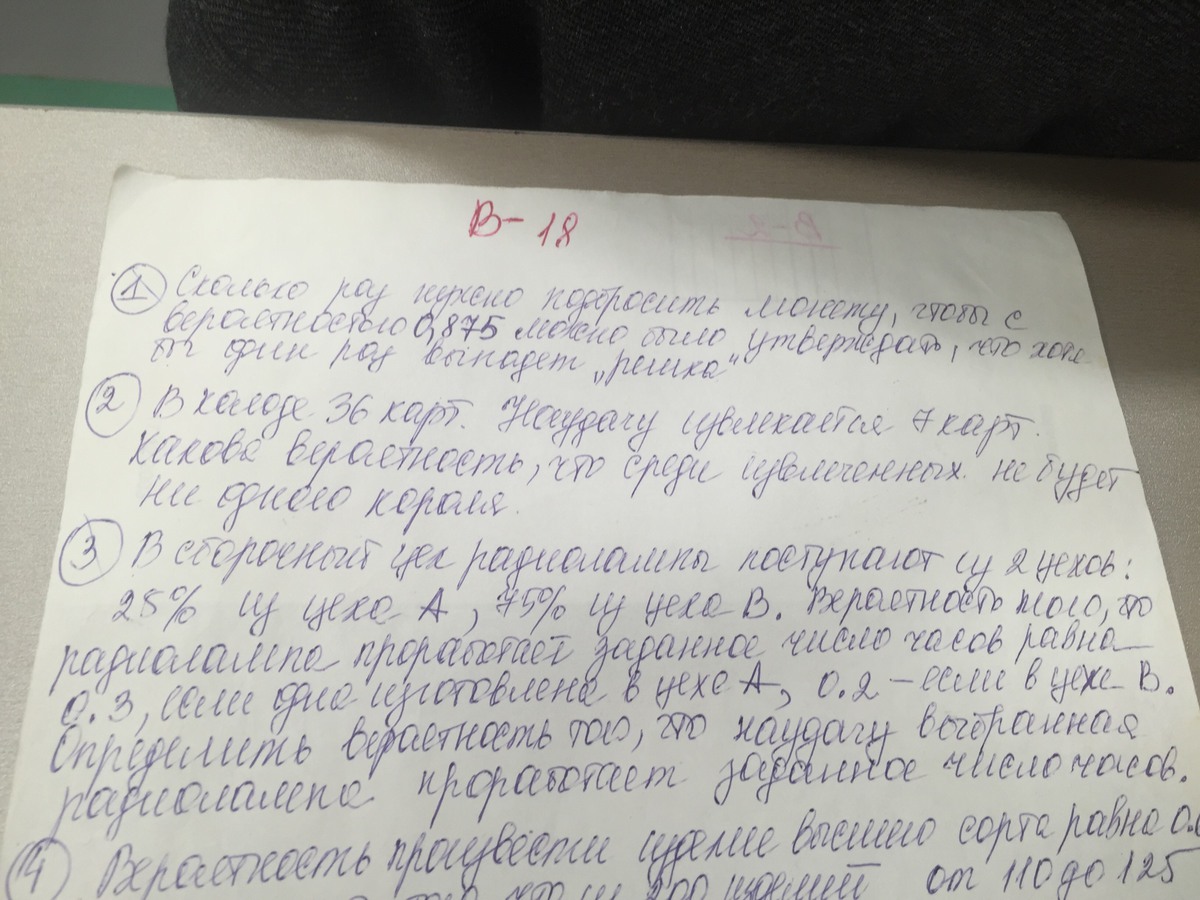 В-18
① Сколько раз нужно подбросить монету, чтобы с
вероятностью 0,875 можно было утверждать, что хотя
бы один раз выпадет „решка"
② В колоде 36 карт. Наудачу извлекается 7 карт.
Какова вероятность, что среди извлеченных не будет
ни одного короля.
③ В сборочный цех радиолампы поступают из 2 цехов:
25% из цеха А, 75% из цеха В. Вероятность того, что
радиолампа проработает заданное число часов равна
0.3, если она изготовлена в цехе А, 0.2 – если в цехе В.
Определить вероятность того, что наудачу выбранная
радиолампа проработает заданное число часов.
④ Вероятность произвести изделие высшего сорта равна 0.
что из 200 изделий от 110 до 125
В-2